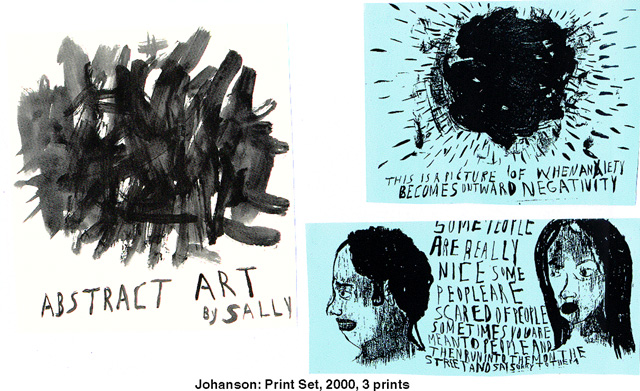 ABSTRACT ART
BY SALLY
THIS IS A PICTURE OF WHEN ANXIETY
BECOMES OUTWARD NEGATIVITY
SOME PEOPLE
ARE REALLY
NICE SOME
PEOPLE ARE
SCARED OF PEOPLE
SOMETIMES YOU ARE
MEAN TO PEOPLE AND
THEN RUN INTO THEM ON THE
STREET AND SAY SORRY TO THEM
Johanson: Print Set, 2000, 3 prints